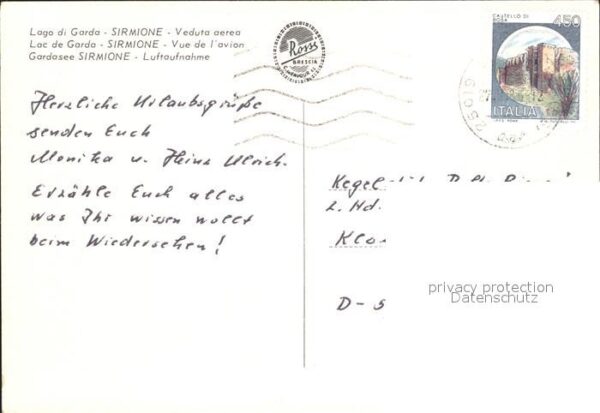 Lago di Garda - SIRMIONE - Veduta aerea
Lac de Garda - SIRMIONE - Vue de l'avion
Gardasee SIRMIONE - Luftaufnahme
Rossi
BRESCIA
CASTELLO DI
450
ITALIA
Herzliche Urlaubsgrüße
senden Euch
Monika u. Heinz Ulrich.
Erzähle Euch alles
was Ihr wissen wollt
beim Wiedersehen!
Kegel
z. Hd.
Klo
D-5
privacy protection
Datenschutz